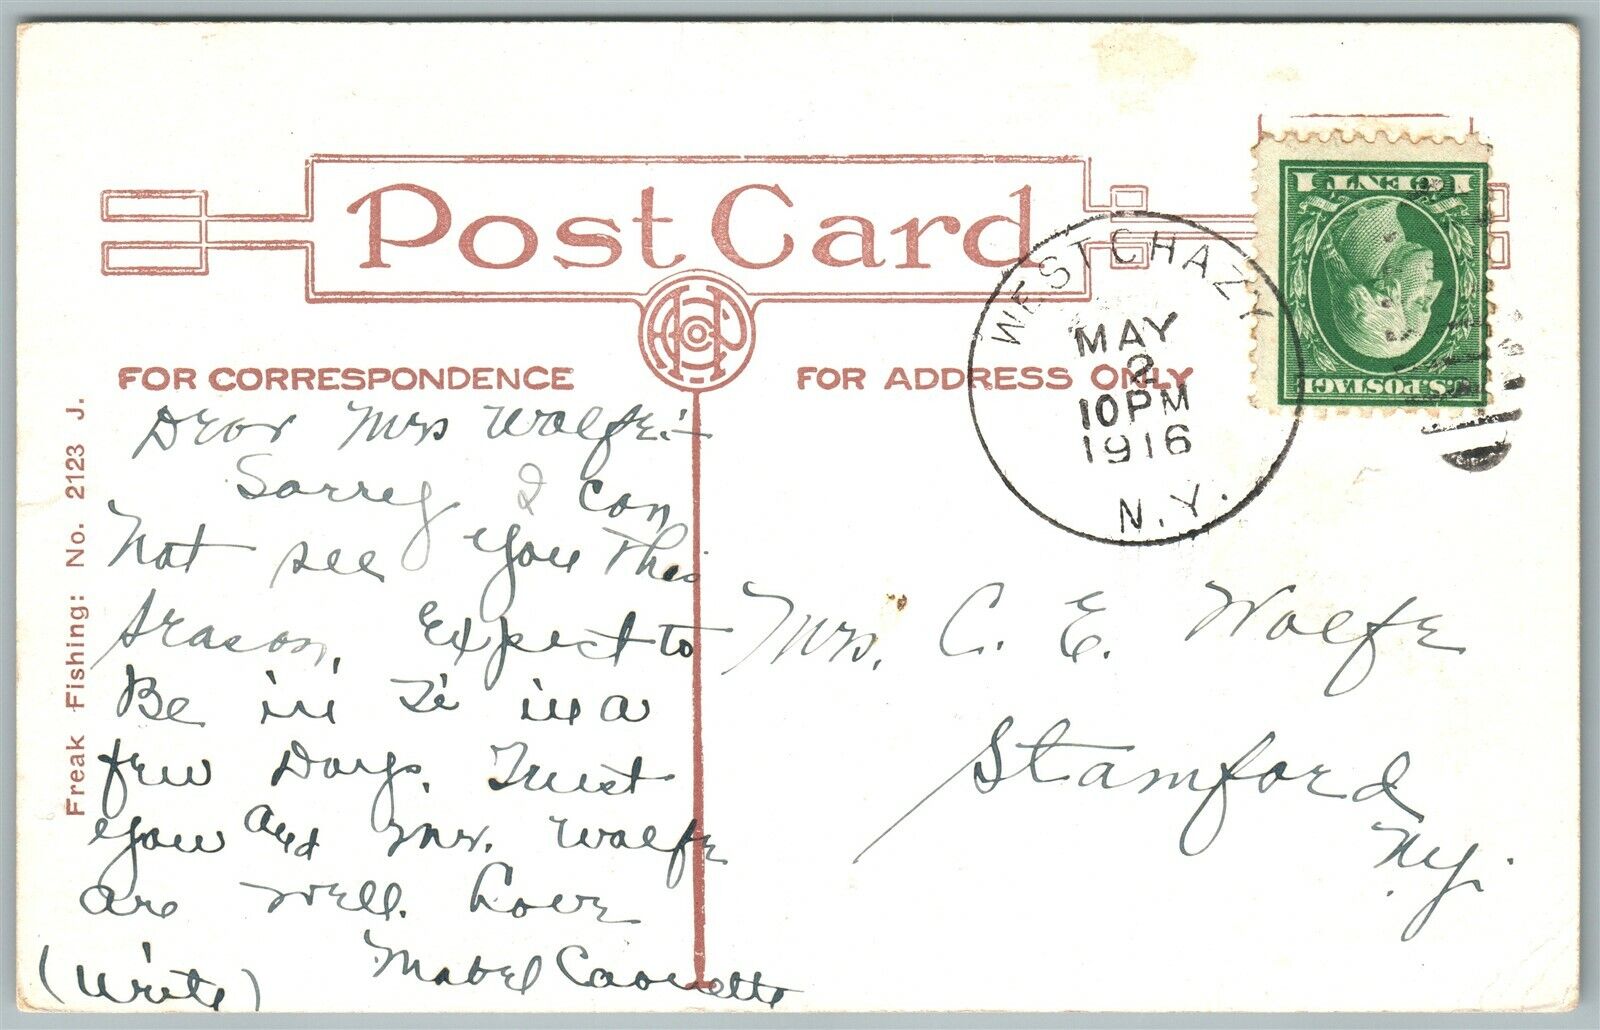 Post Card
FOR CORRESPONDENCE
FOR ADDRESS ONLY
Freak Fishing: No. 2123 J.
WEST CHAZY
MAY
2
10 PM
1916
N.Y.
1 CENT 1
U.S. POSTAGE
Dear Mrs Wolfe:-
Sorrey I can
Not see you this
season, Expect to
Be in Ti in a
few Days. Trust
you and Mr. Wolfe
are well. Love
Mabel
(Write)
Mrs. C. E. Wolfe
Stamford
N.Y.